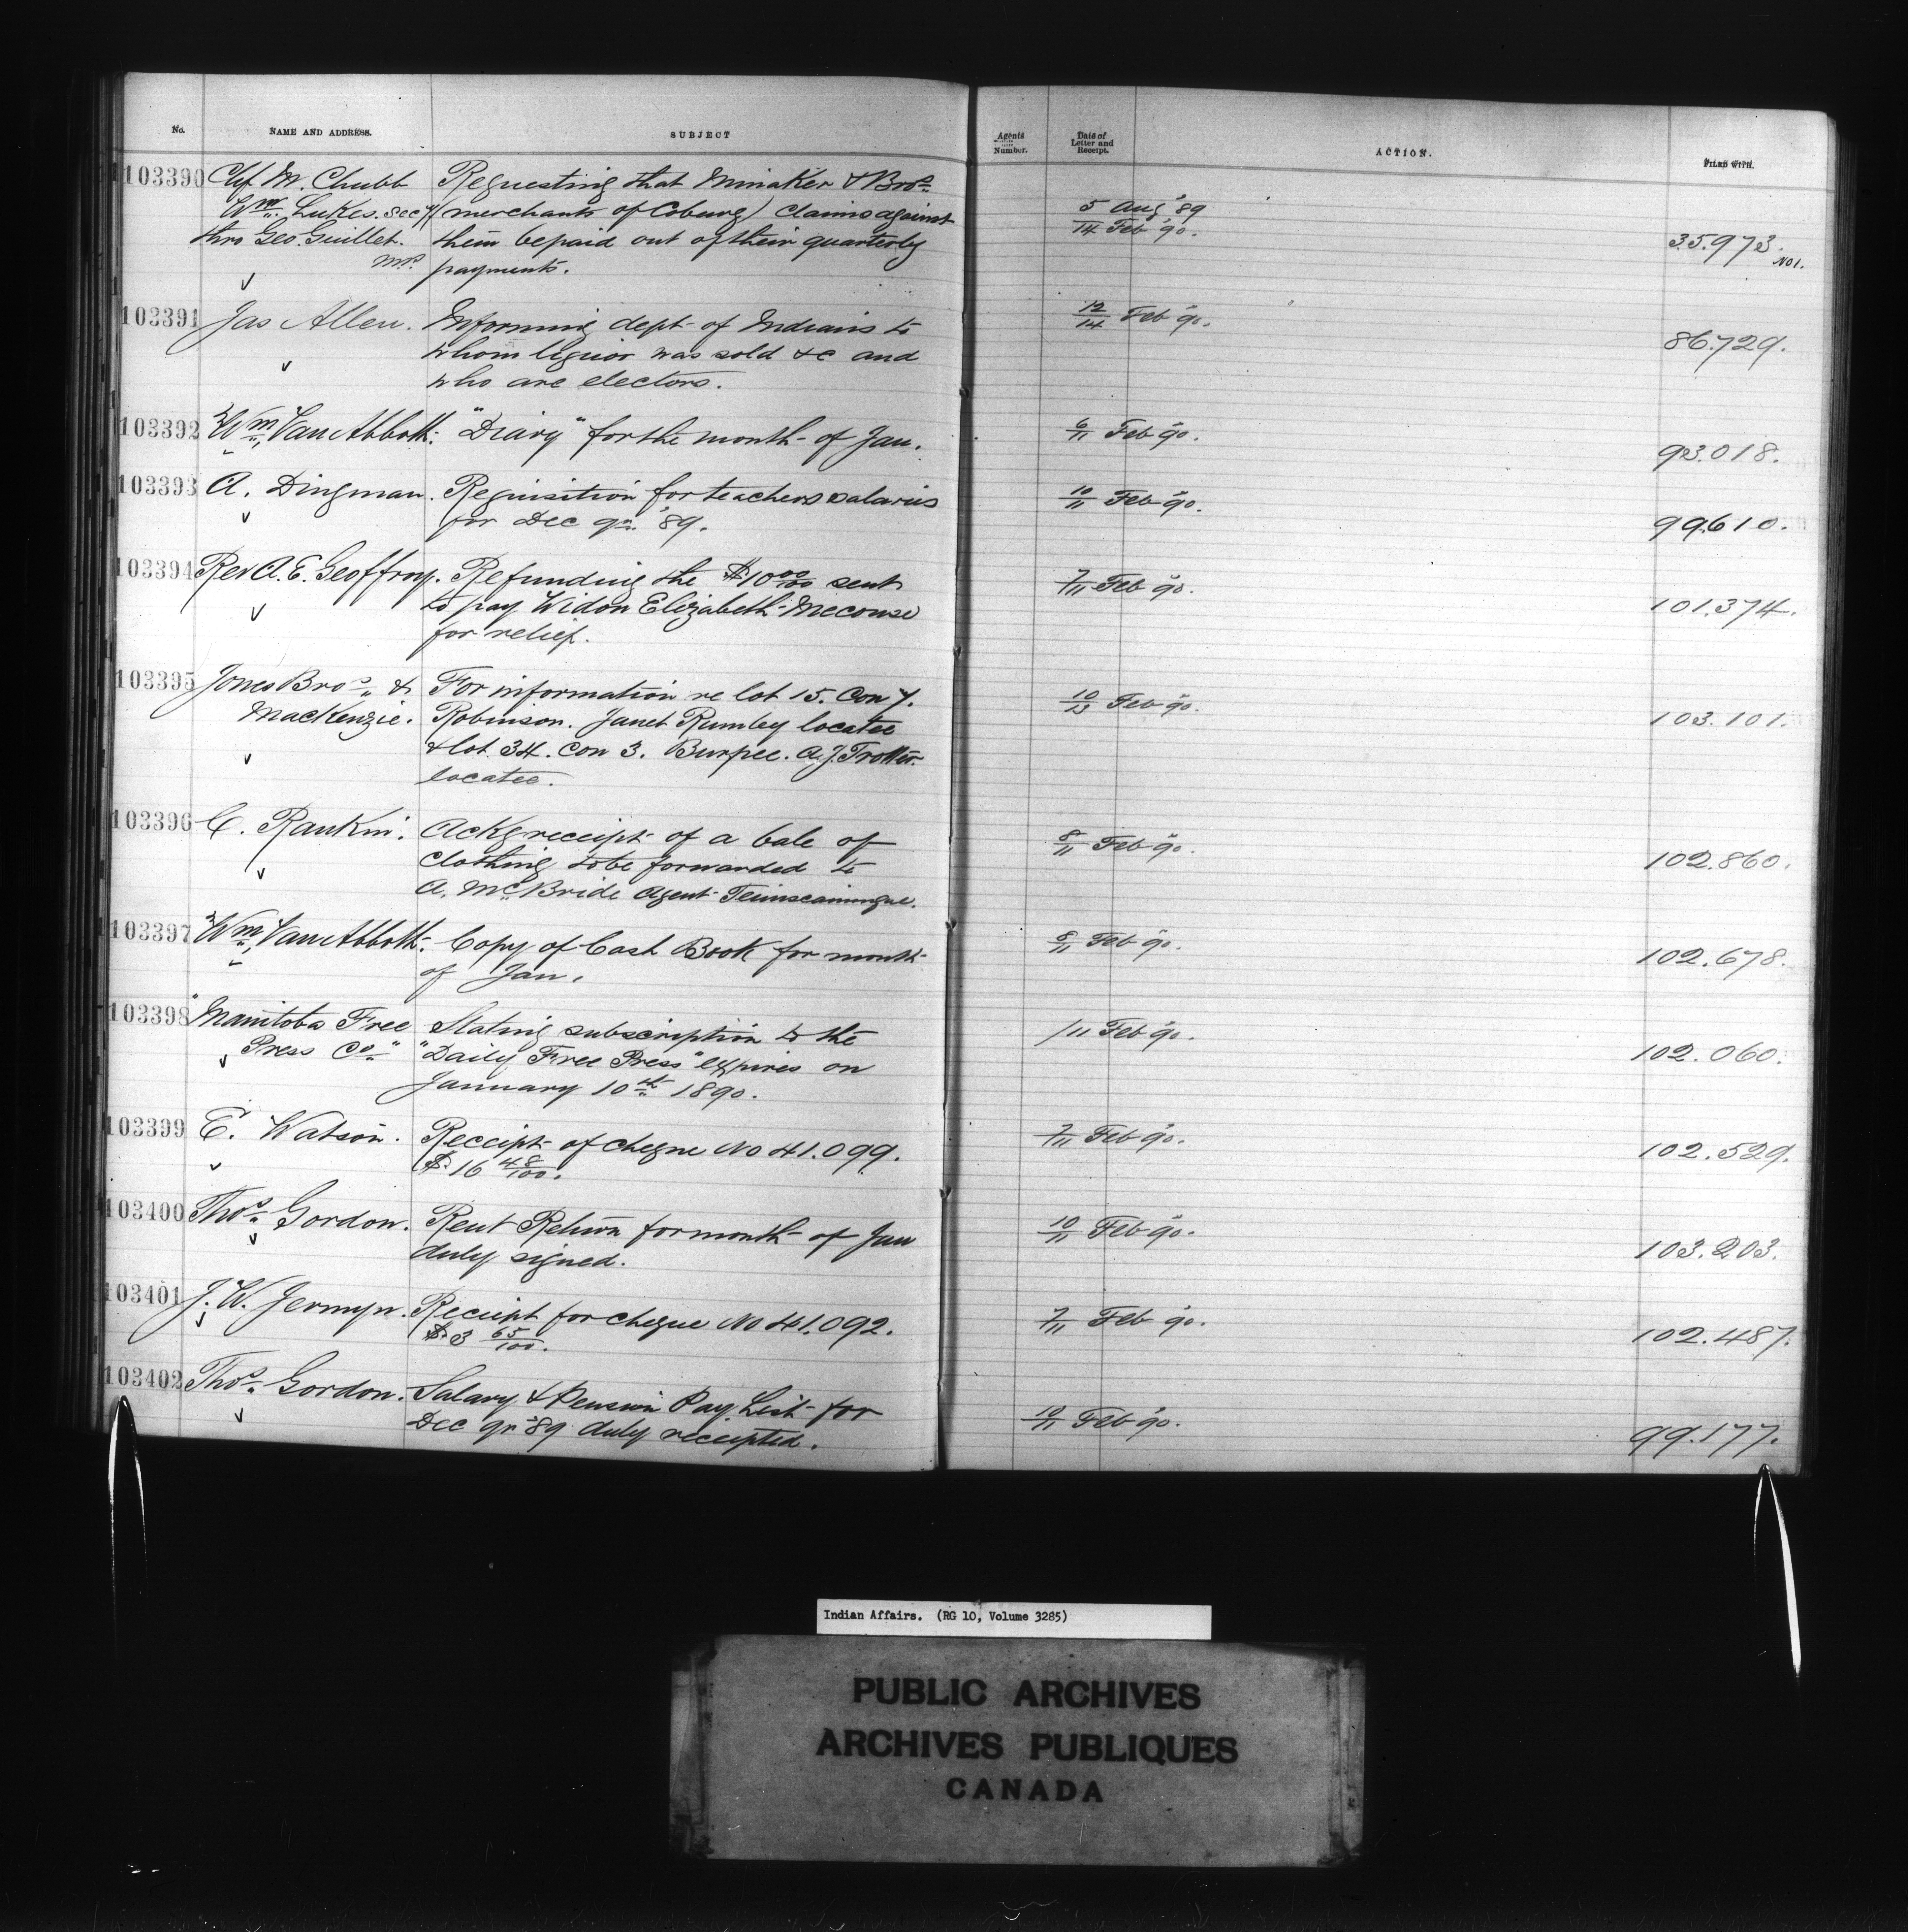 No. NAME AND ADDRESS. SUBJECT Agents Number. Date of Letter and Receipt. ACTION. FILED WITH.
103390 Chf M. Chubb Requesting that Minaker & Bros
Wm. Lukes. secy (merchants of Coburg) claims against 5 Aug '89
thro Geo Guillet. them be paid out of their quarterly 14 Feb '90. 35.973.
M.P. payments. No 1.
103391 Jas Allen. Informing dept of Indians to 12/14 Feb 90.
whom liquor was sold &c and 86.729.
who are electors.
103392 Wm Van Abbott. "Diary" for the month of Jan. 6/11 Feb 90. 93.018.
103393 A. Dingman. Requisition for teachers salaries 10/11 Feb 90.
for Dec qr. '89. 99.610.
103394 Rev A. E. Geoffroy. Refunding the $10 00/100 sent 7/11 Feb 90.
to pay Widow Elizabeth Meconse 101.374.
for relief.
103395 Jones Bros & For information re lot 15. Con 7. 10/13 Feb 90.
MacKenzie. Robinson. Janet Rumley locatee 103.101.
& lot 34. Con 3. Burpee. A. J. Trotter
locatee.
103396 C. Rankin. Ackg receipt of a bale of 8/11 Feb 90.
clothing to be forwarded to 102.860.
A. McBride Agent Temiscamingue.
103397 Wm Van Abbott. Copy of Cash Book for month 8/11 Feb 90.
of Jan. 102.678.
103398 "Manitoba Free Stating subscription to the /11 Feb 90.
Press Co" "Daily Free Press" expires on 102.060.
January 10th 1890.
103399 E. Watson. Receipt of cheque No 41.099. 7/11 Feb 90.
$16 48/100. 102.529.
103400 Thos Gordon. Rent Return for month of Jan 10/11 Feb 90.
duly signed. 103.203.
103401 J. W. Jermyn. Receipt for cheque No 41.092. 7/11 Feb 90.
$3 65/100. 102.487.
103402 Thos Gordon. Salary & Pension Pay List for 10/11 Feb 90.
Dec qr '89 duly receipted. 99.177.
Indian Affairs. (RG 10, Volume 3285)
PUBLIC ARCHIVES
ARCHIVES PUBLIQUES
CANADA